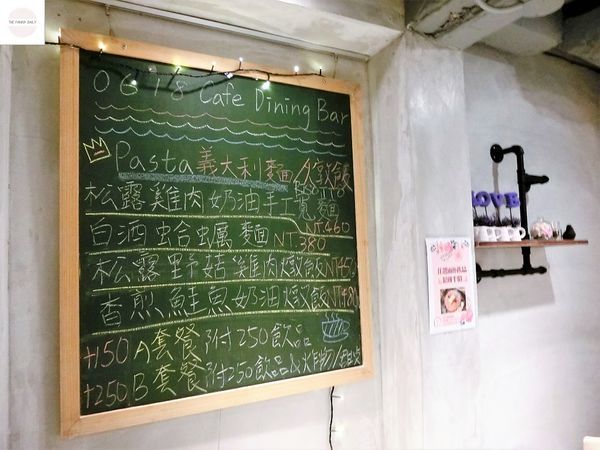 THE FUNNY DAILY
0618 Cafe Dining Bar
Pasta義大利麵&燉飯
松露雞肉奶油手工寬麵
NT.460
白酒蛤蠣麵NT.380
松露野菇雞肉燉飯NT.450
香煎鮭魚奶油燉飯NT.480
+150 A套餐附250飲品
+250 B套餐附250飲品&炸物/甜點
LOVE